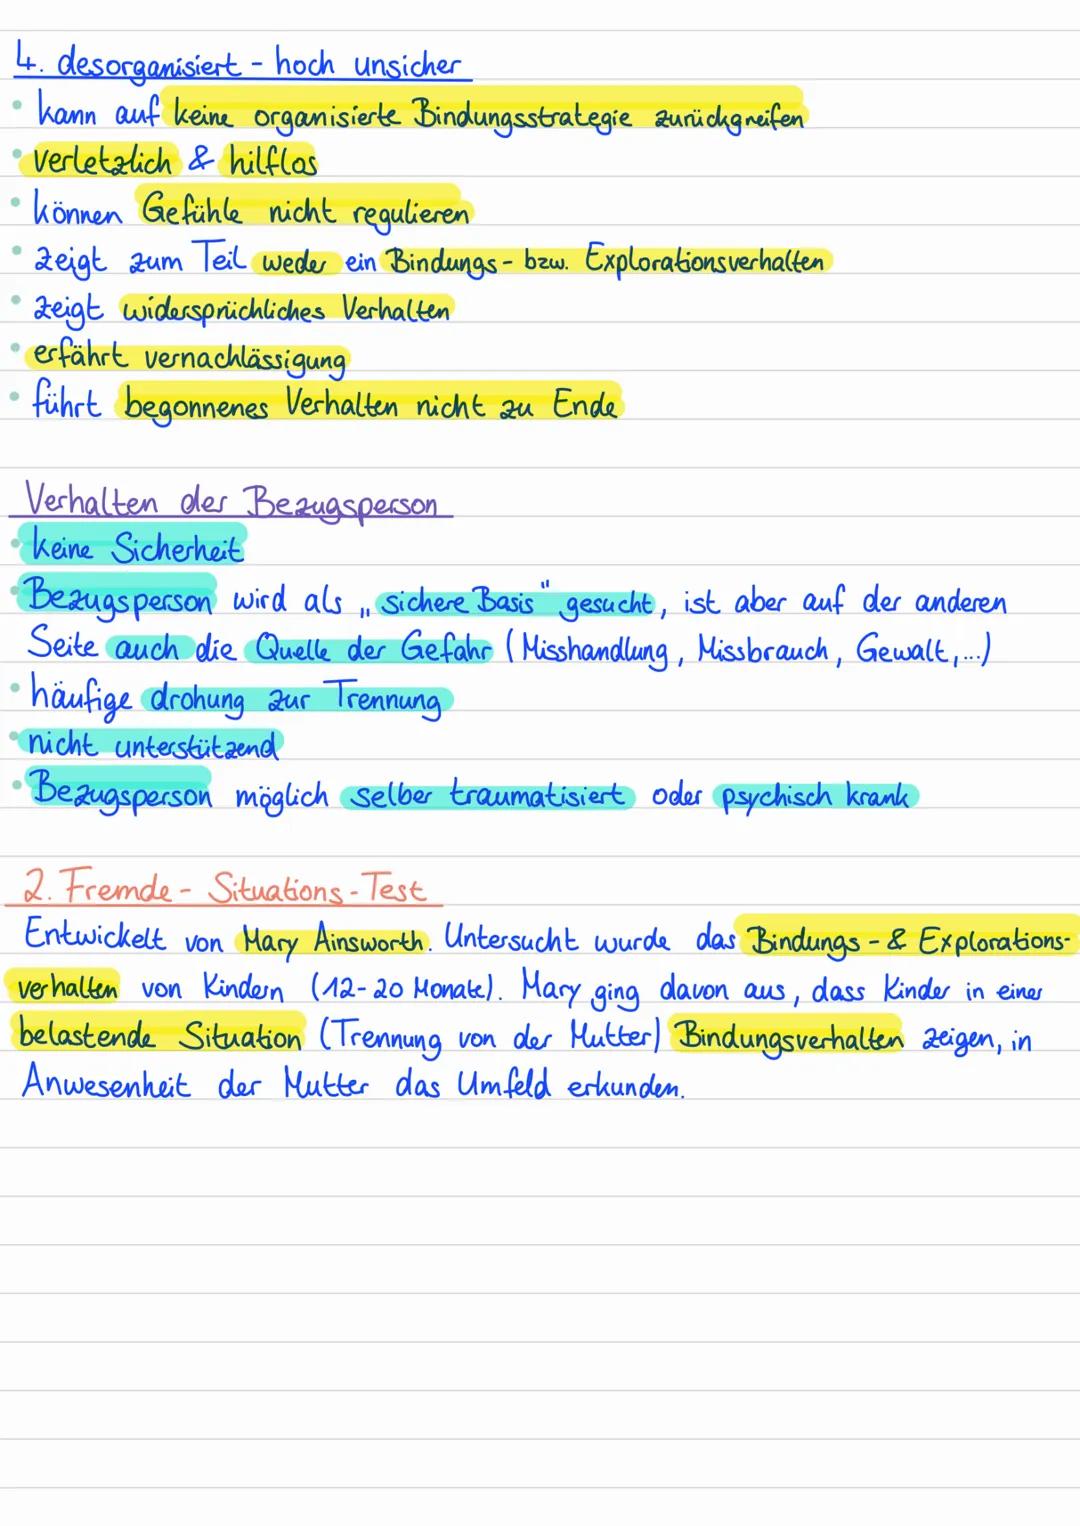 4. desorganisiert - hoch unsicher
• kann auf keine organisierte Bindungsstrategie zurückgreifen
• verletzlich & hilflos
• können Gefühle nicht regulieren
• zeigt zum Teil weder ein Bindungs- bzw. Explorationsverhalten
• zeigt widersprüchliches Verhalten
• erfährt vernachlässigung
• führt begonnenes Verhalten nicht zu Ende
Verhalten der Bezugsperson
• keine Sicherheit
• Bezugsperson wird als „sichere Basis" gesucht, ist aber auf der anderen
Seite auch die Quelle der Gefahr (Misshandlung, Missbrauch, Gewalt,...)
• häufige drohung zur Trennung
• nicht unterstützend
• Bezugsperson möglich selber traumatisiert oder psychisch krank
2. Fremde-Situations-Test
Entwickelt von Mary Ainsworth. Untersucht wurde das Bindungs-& Explorations-
verhalten von Kindern (12-20 Monate). Mary ging davon aus, dass Kinder in einer
belastende Situation (Trennung von der Mutter) Bindungsverhalten zeigen, in
Anwesenheit der Mutter das Umfeld erkunden.